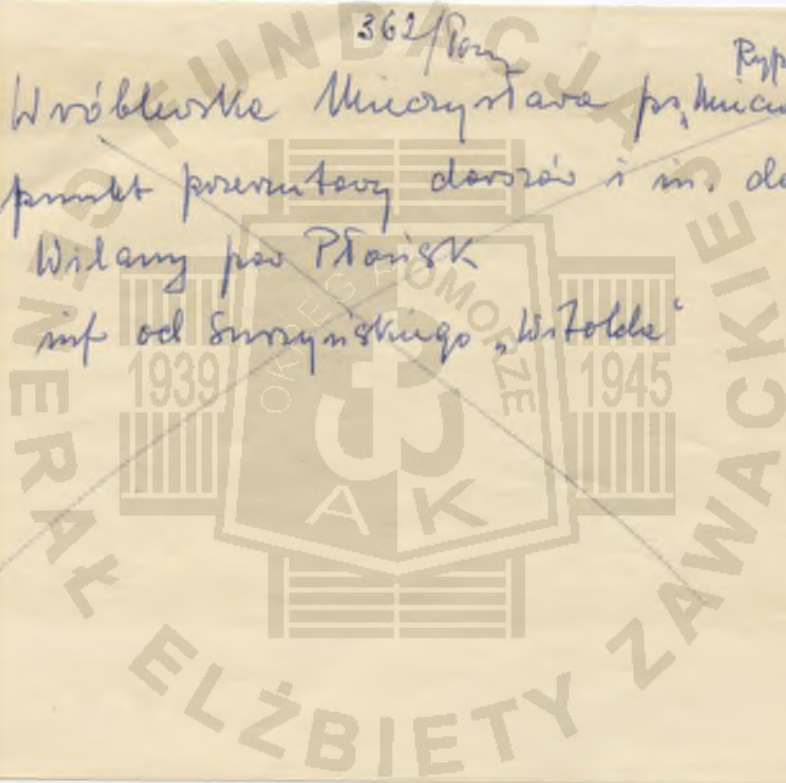 362/Pom
Ryp
Wróblewska Mieczysława ps. „Miecia
punkt przerzutowy i in. do
Wilamy pow Płońsk
inf od Suszyńskiego „Witolda"
FUNDACJA GENERAŁ ELŻBIETY ZAWACKIEJ
OKRĘG POMORZE
1939
1945
AK